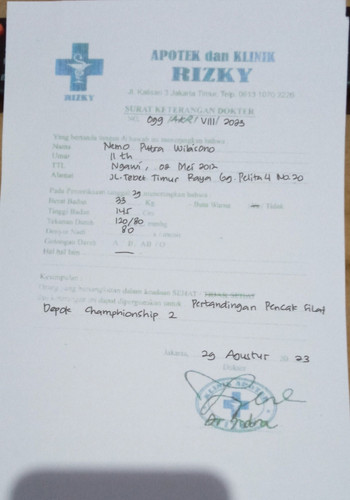 APOTEK dan KLINIK
RIZKY
RIZKY
Jl. Kalisari 3 Jakarta Timur, Tlp.
SURAT KETERANGAN DOKTER
099 / / VIII / 2023
Yang bertanda tangan dibawah ini menerangkan bahwa
Nama Nemo Putra Wibisono
Umur 11 th
TTL Ngawi, 08 Mei 2012
Alamat JL. Tebet Timur Raya Gg. Pelita 4 No. 20
Pada Pemeriksaan tanggal 29 menerangkan bahwa :
Berat Badan 33 Kg Buta Warna Tidak
Tinggi Badan 145 Cm
Tekanan Darah 120/80
Denyut Nadi 80
Golongan Darah A B AB O
Hal hal lain —
Kesimpulan :
Orang yang bersangkutan dalam keadaan SEHAT
Pertandingan Pencak Silat
Depok Champhionship 2
Jakarta, 29 Agustus 20 23
Dokter